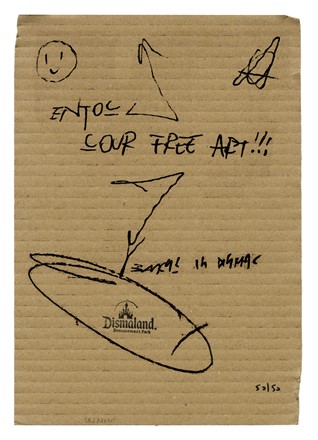 ENJOY
YOUR FREE ART!!!
IN
Dismaland.
Bemusement Park
50/50